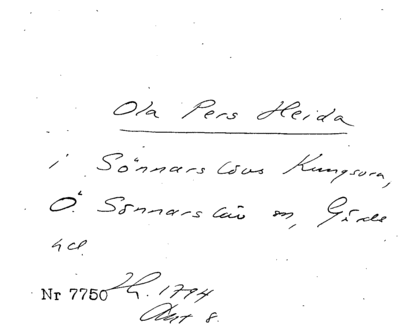 Ola Pers Heida
i Sönnarslövs Kungsorn,
Ö. Sönnarslöv sn, Gärds
hd.
Nr 7750 1794
8.